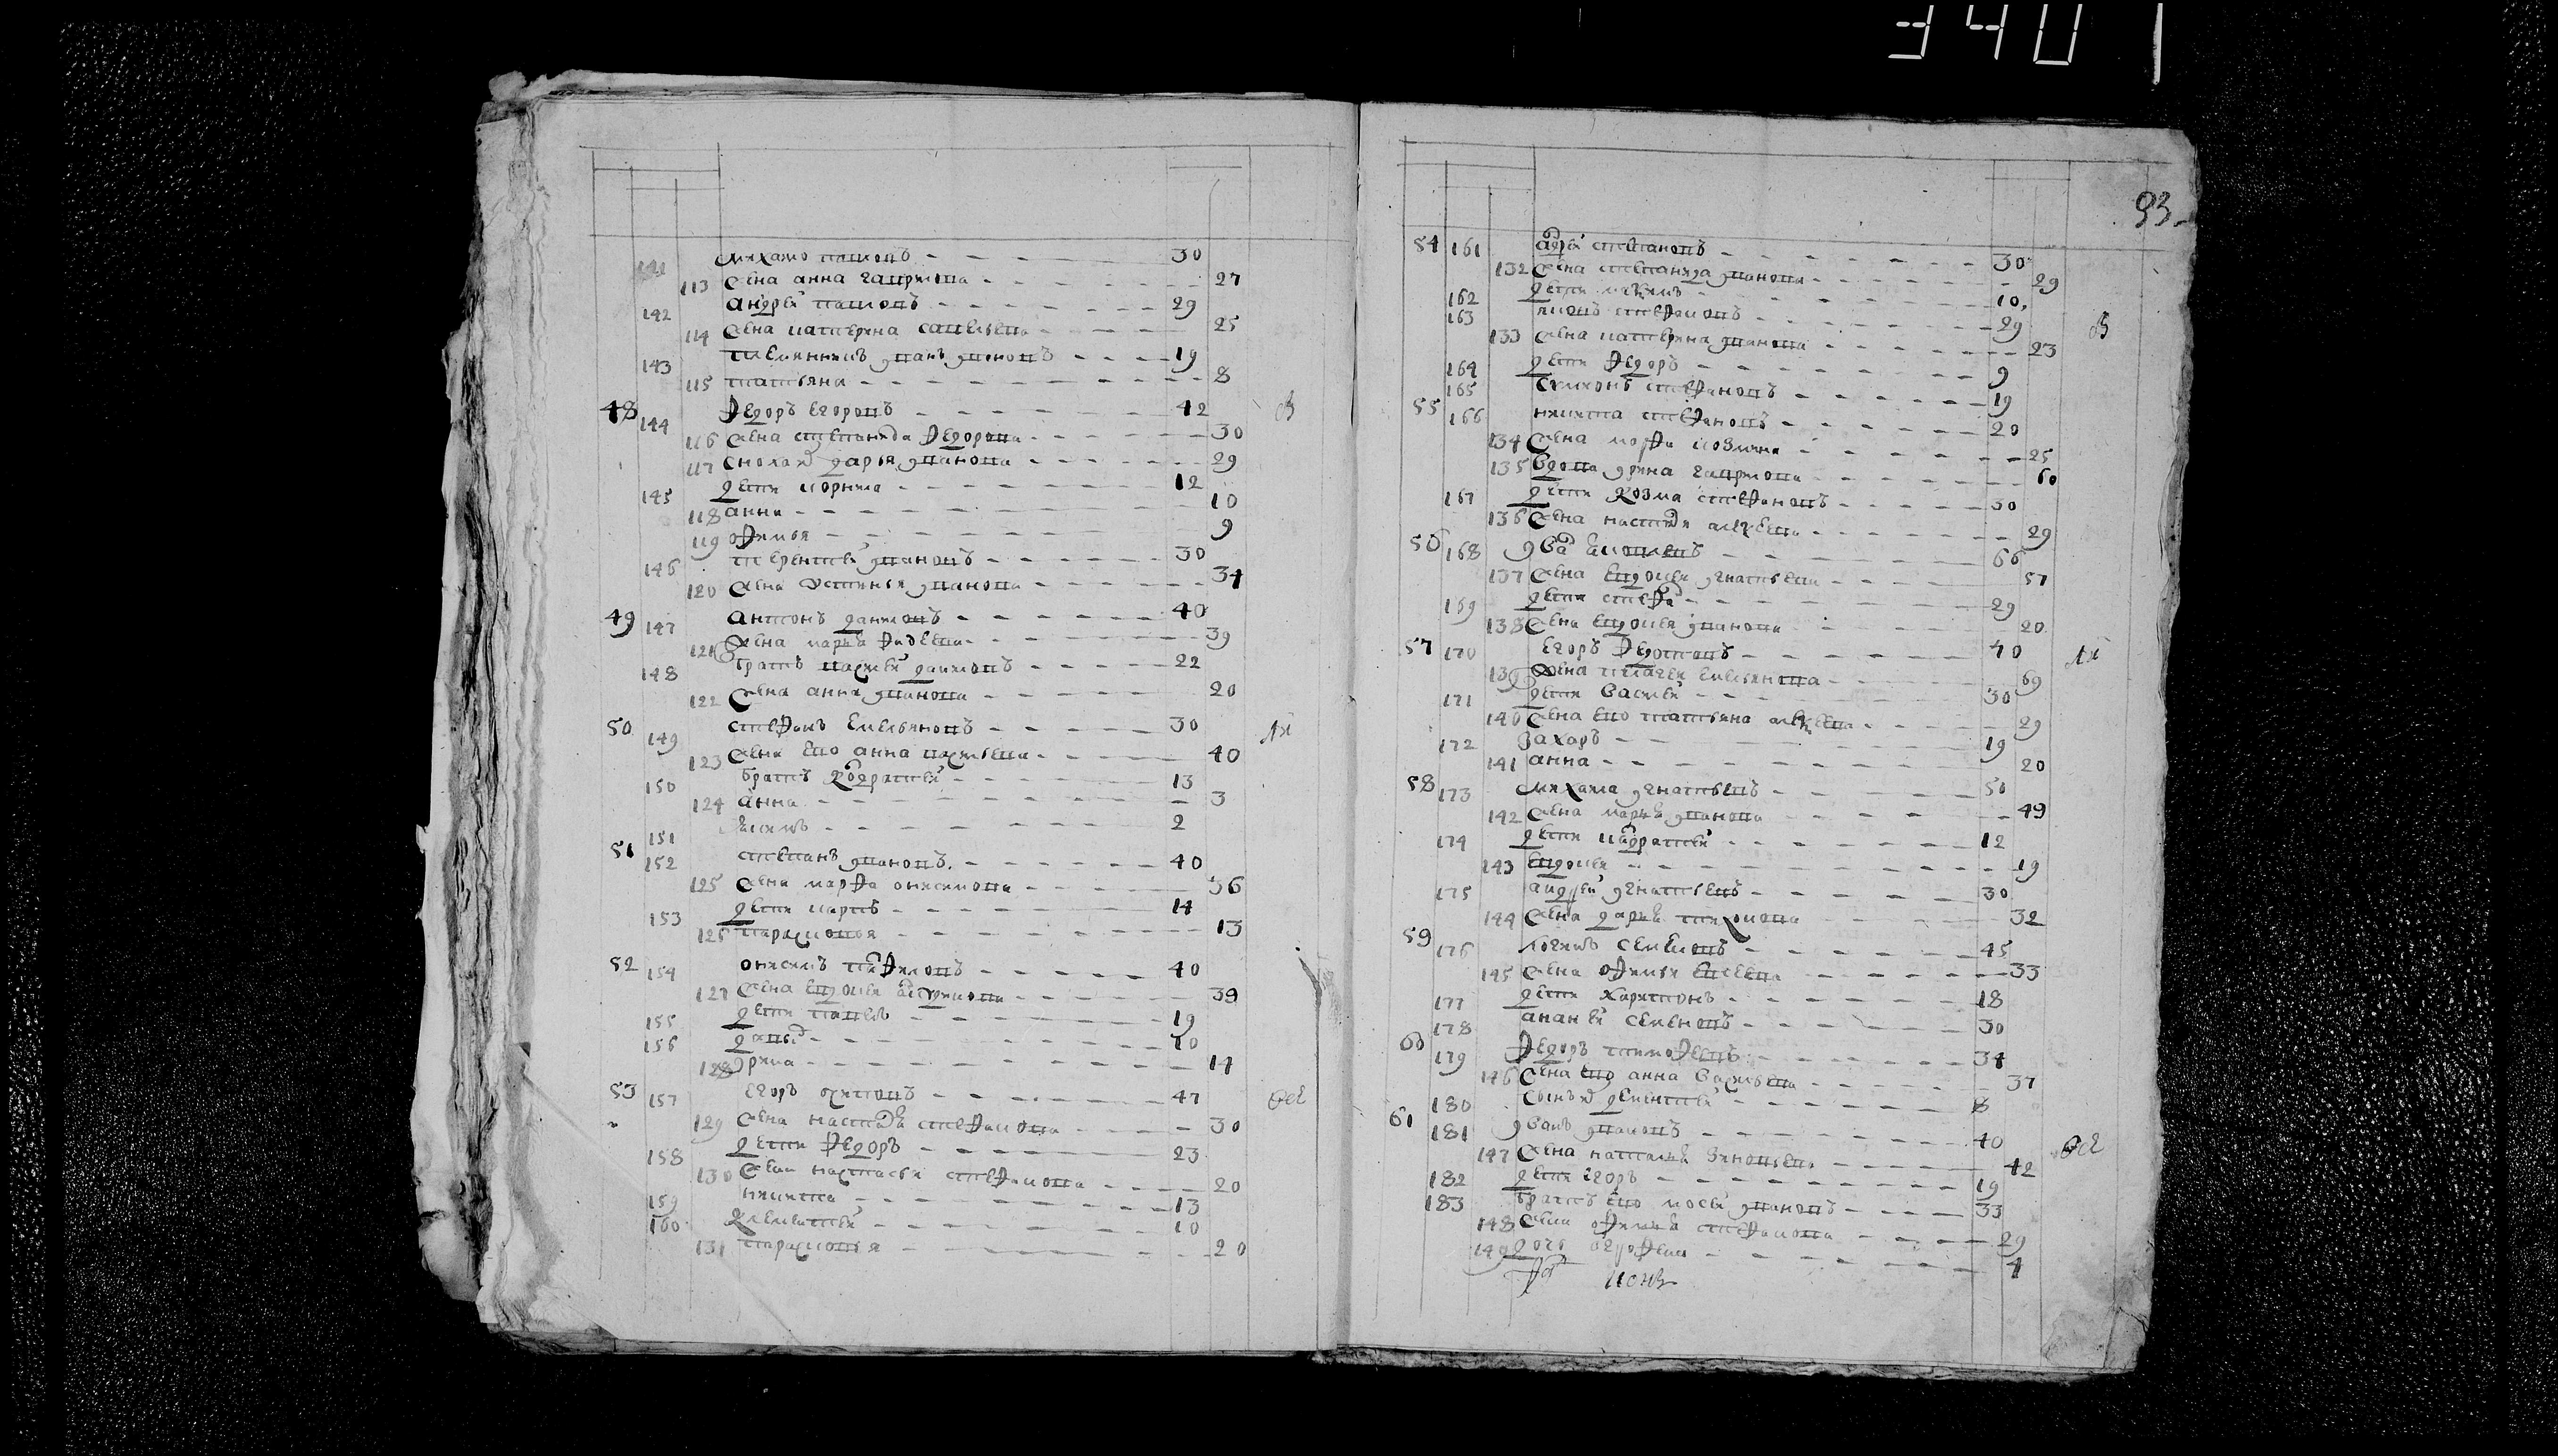 3401
93
141 михаило павловъ 30
113 жена анна гаврилова 27
142 андрей павловъ 29
114 жена катерина савельева 25
143 племянникъ иванъ ивановъ 19
115 татьяна 8
48 144 федоръ егоровъ 42
116 жена степанида федорова 30
117 сноха дарья иванова 29
145 дети корнила 12
118 анна 10
119 офимья 9
146 терентей ивановъ 30
120 жена устинья иванова 34
49 147 антонъ даниловъ 40
121 жена марья фадеева 39
148 братъ василей даниловъ 22
122 жена анна иванова 20
50 149 стефанъ емельяновъ 30
123 жена ево анна васильева 40
150 братъ кодратей 13
124 анна 3
151 2
51 152 степанъ ивановъ 40
125 жена марфа онисимова 36
153 дети карпъ 14
126 парасковья 13
52 154 онисимъ 40
127 жена евдокея 39
155 дети павелъ 19
156 давыд 10
128 ирина 14
53 157 егоръ 47
129 жена настася стефанова 30
158 дети федоръ 23
130 жена настасья стефанова 20
159 никита 13
160 клементей 10
131 парасковья 20
54 161 андрей степановъ 30
132 жена степанида иванова 29
162 дети 10
163 стефановъ 29
133 жена катерина иванова 23
164 дети федоръ 9
165 стефановъ 19
55 166 никита стефановъ 20
134 жена марфа козмина 25
135 вдова ирина гаврилова 60
167 дети козма стефановъ 30
136 жена настася алексеева 29
56 168 иван 66
137 жена евдокея игнатьева 57
169 дети стефан 29
138 жена евдокея иванова 20
57 170 егоръ федотовъ 40
139 жена пелагея емельянова 69
171 дети василей 30
140 жена ево татьяна алексеева 29
172 захаръ 19
141 анна 20
58 173 михаила игнатьевъ 50
142 жена марья иванова 49
174 дети кодратей 12
143 евдокея 19
175 андрей игнатьевъ 30
144 жена дарья 32
59 176 логинъ семеновъ 45
145 жена офимья евсеева 33
177 дети харитонъ 18
178 ананей семеновъ 30
60 179 федоръ тимофеевъ 34
146 жена ево анна васильева 37
180 сынъ дементей 8
61 181 иванъ ивановъ 40
147 жена наталья зиновьева 42
182 дети егоръ 19
183 братъ ево мосей ивановъ 33
148 жена офимья стефанова 29
149 дочь 4